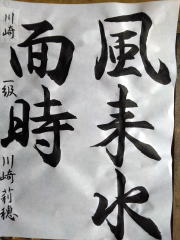 風来水
面時
川崎 一級 川崎莉穂